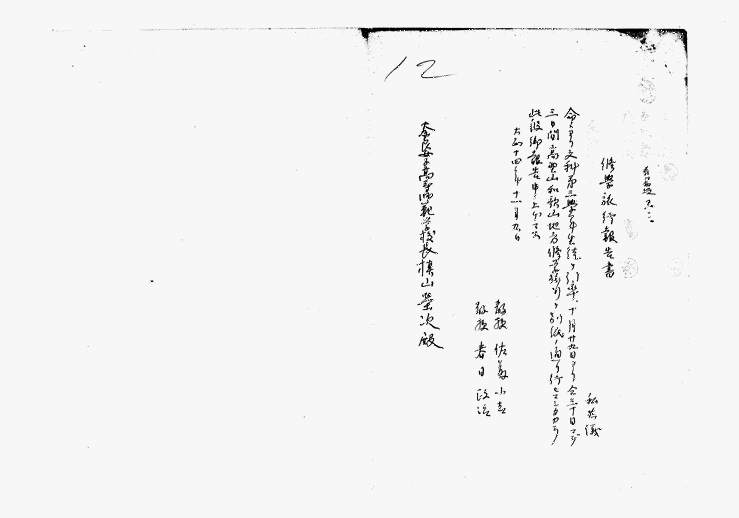 12
修學旅行報告書
私共儀
命ニヨリ文科第三學年生徒ヲ引率、十月廿九日ヨリ仝三十一日マデ
三日間高野山和歌山地方修學旅行ヲ別紙ノ通リ行ヒマシタカラ
此段御報告申上候也
大正十四年十一月九日
教授 佐藤小吉
教授 春日政治
奈良女子高等師範学校長槇山榮次殿